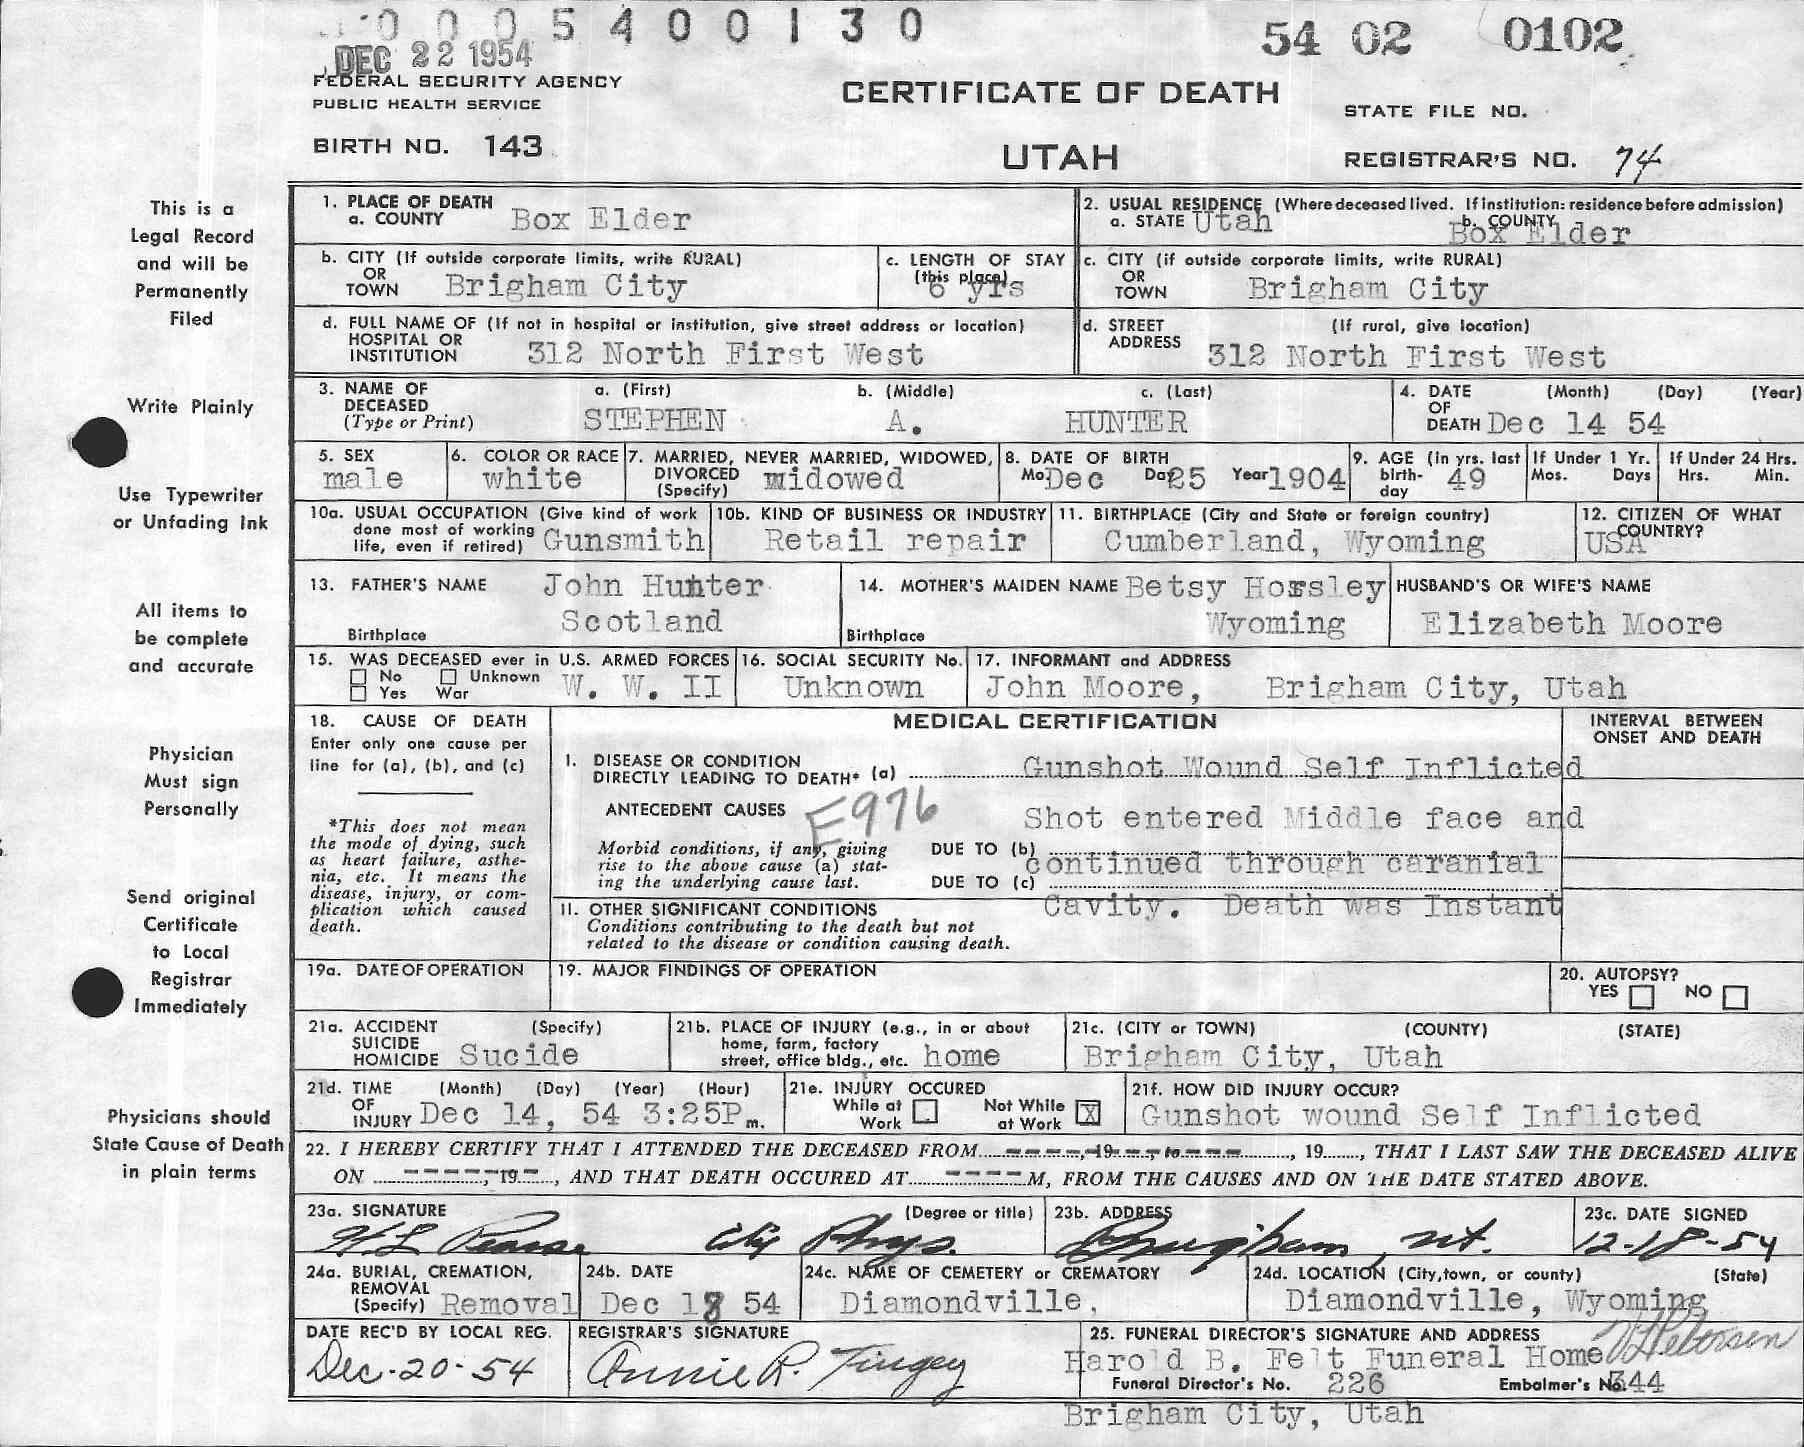 0005400130
DEC 22 1954
54 02 0102
FEDERAL SECURITY AGENCY
PUBLIC HEALTH SERVICE
CERTIFICATE OF DEATH
STATE FILE NO.
BIRTH NO. 143
UTAH
REGISTRAR'S NO. 74
This is a
Legal Record
and will be
Permanently
Filed
Write Plainly
Use Typewriter
or Unfading Ink
All items to
be complete
and accurate
Physician
Must sign
Personally
Send original
Certificate
to Local
Registrar
Immediately
Physicians should
State Cause of Death
in plain terms
1. PLACE OF DEATH
a. COUNTY Box Elder
2. USUAL RESIDENCE (Where deceased lived. If institution: residence before admission)
a. STATE Utah b. COUNTY Box Elder
b. CITY (If outside corporate limits, write RURAL)
OR
TOWN Brigham City
c. LENGTH OF STAY
(this place) 6 yrs
c. CITY (if outside corporate limits, write RURAL)
OR
TOWN Brigham City
d. FULL NAME OF (If not in hospital or institution, give street address or location)
HOSPITAL OR
INSTITUTION 312 North First West
d. STREET (If rural, give location)
ADDRESS 312 North First West
3. NAME OF a. (First) b. (Middle) c. (Last)
DECEASED
(Type or Print) STEPHEN A. HUNTER
4. DATE (Month) (Day) (Year)
OF
DEATH Dec 14 54
5. SEX
male
6. COLOR OR RACE
white
7. MARRIED, NEVER MARRIED, WIDOWED,
DIVORCED widowed
(Specify)
8. DATE OF BIRTH
Mo. Dec Da. 25 Year 1904
9. AGE (in yrs. last
birth-
day 49
If Under 1 Yr.
Mos. Days
If Under 24 Hrs.
Hrs. Min.
10a. USUAL OCCUPATION (Give kind of work
done most of working
life, even if retired) Gunsmith
10b. KIND OF BUSINESS OR INDUSTRY
Retail repair
11. BIRTHPLACE (City and State or foreign country)
Cumberland, Wyoming
12. CITIZEN OF WHAT
COUNTRY?
USA
13. FATHER'S NAME John Hunter
Birthplace Scotland
14. MOTHER'S MAIDEN NAME Betsy Horsley
Birthplace Wyoming
HUSBAND'S OR WIFE'S NAME
Elizabeth Moore
15. WAS DECEASED ever in U.S. ARMED FORCES
No Unknown
Yes War W. W. II
16. SOCIAL SECURITY No.
Unknown
17. INFORMANT and ADDRESS
John Moore, Brigham City, Utah
18. CAUSE OF DEATH
Enter only one cause per
line for (a), (b), and (c)
*This does not mean
the mode of dying, such
as heart failure, asthe-
nia, etc. It means the
disease, injury, or com-
plication which caused
death.
MEDICAL CERTIFICATION
INTERVAL BETWEEN
ONSET AND DEATH
I. DISEASE OR CONDITION
DIRECTLY LEADING TO DEATH* (a) Gunshot Wound Self Inflicted
ANTECEDENT CAUSES E976 Shot entered Middle face and
Morbid conditions, if any, giving
rise to the above cause (a) stat-
ing the underlying cause last.
DUE TO (b)
continued through caranial
DUE TO (c)
Cavity. Death was Instant
II. OTHER SIGNIFICANT CONDITIONS
Conditions contributing to the death but not
related to the disease or condition causing death.
19a. DATE OF OPERATION
19. MAJOR FINDINGS OF OPERATION
20. AUTOPSY?
YES NO
21a. ACCIDENT (Specify)
SUICIDE
HOMICIDE Sucide
21b. PLACE OF INJURY (e.g., in or about
home, farm, factory
street, office bldg., etc. home
21c. (CITY or TOWN) (COUNTY) (STATE)
Brigham City, Utah
21d. TIME (Month) (Day) (Year) (Hour)
OF
INJURY Dec 14, 54 3:25P m.
21e. INJURY OCCURED
While at Work Not While at Work X
21f. HOW DID INJURY OCCUR?
Gunshot wound Self Inflicted
22. I HEREBY CERTIFY THAT I ATTENDED THE DECEASED FROM ----,19---, to ----, 19......, THAT I LAST SAW THE DECEASED ALIVE
ON -----, 19---, AND THAT DEATH OCCURED AT ---- M, FROM THE CAUSES AND ON THE DATE STATED ABOVE.
23a. SIGNATURE (Degree or title)
H L Pearse City Phys.
23b. ADDRESS
Brigham, Ut.
23c. DATE SIGNED
12-18-54
24a. BURIAL, CREMATION,
REMOVAL
(Specify) Removal
24b. DATE
Dec 18 54
24c. NAME OF CEMETERY or CREMATORY
Diamondville,
24d. LOCATION (City, town, or county) (State)
Diamondville, Wyoming
DATE REC'D BY LOCAL REG.
Dec-20-54
REGISTRAR'S SIGNATURE
Annie R. Tingey
25. FUNERAL DIRECTOR'S SIGNATURE AND ADDRESS
Harold B. Felt Funeral Home Petersen
Funeral Director's No. 226 Embalmer's No. 344
Brigham City, Utah